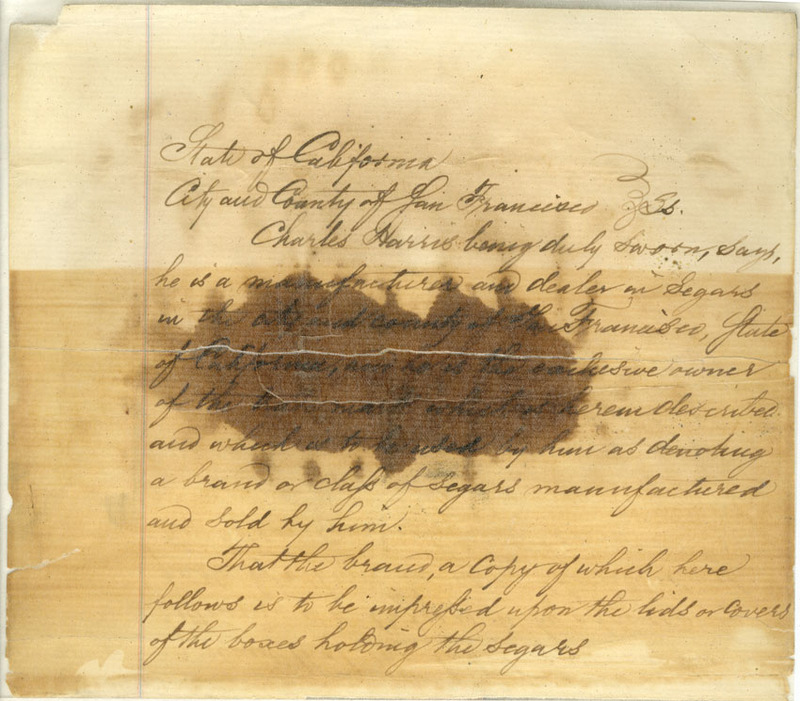 State of California
City and County of San Francisco } Ss.
Charles Harris being duly sworn, says,
he is a manufacturer and dealer in Segars
in the city and county of San Francisco, State
of California, and he is the exclusive owner
of the trade mark which is herein described
and which is to be used by him as denoting
a brand or class of Segars manufactured
and sold by him.
That the brand, a copy of which here
follows is to be impressed upon the lids or covers
of the boxes holding the Segars